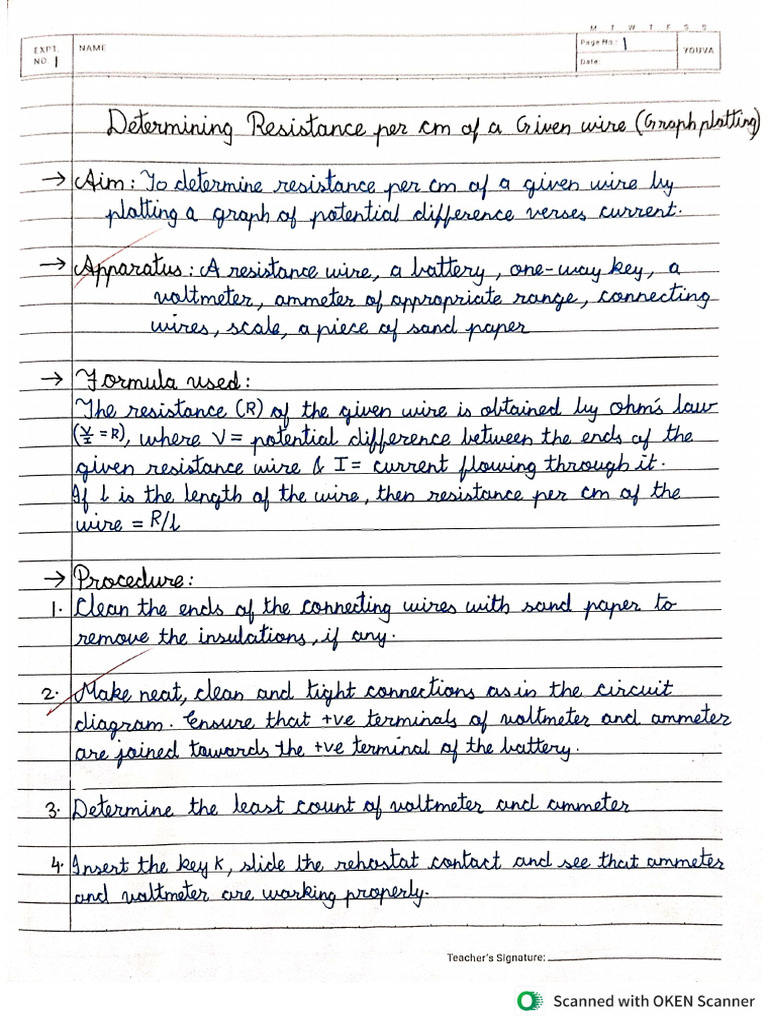 M T W T F S S
EXPT. NO. 1 NAME Page No.: 1 YOUVA
Date:
Determining Resistance per cm of a Given wire (Graph plotting)
→ Aim: To determine resistance per cm of a given wire by
plotting a graph of potential difference verses current.
→ Apparatus: A resistance wire, a battery, one-way key, a
voltmeter, ammeter of appropriate range, connecting
wires, scale, a piece of sand paper
→ Formula used:
The resistance (R) of the given wire is obtained by ohm's law
(V/I = R), where V = potential difference between the ends of the
given resistance wire & I = current flowing through it.
If l is the length of the wire, then resistance per cm of the
wire = R/l
→ Procedure:
1. Clean the ends of the connecting wires with sand paper to
remove the insulations, if any.
2. Make neat, clean and tight connections as in the circuit
diagram. Ensure that +ve terminals of voltmeter and ammeter
are joined towards the +ve terminal of the battery.
3. Determine the least count of voltmeter and ammeter
4. Insert the key K, slide the rehostat contact and see that ammeter
and voltmeter are working properly.
Teacher's Signature:
Scanned with OKEN Scanner